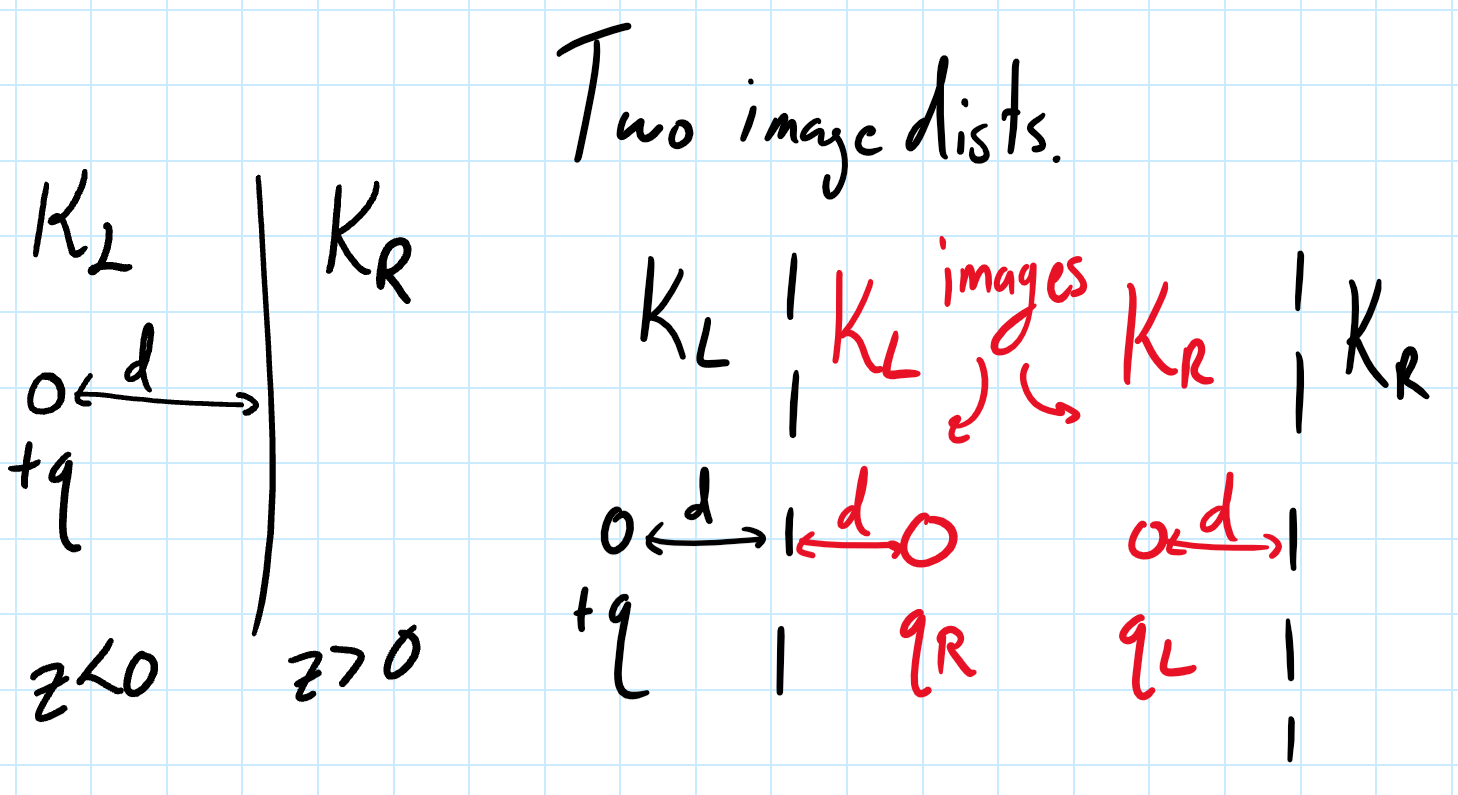 Two image dists.
K_L K_R
d
+q
z<0 z>0
images
K_L K_L K_R K_R
d d d
+q q_R q_L